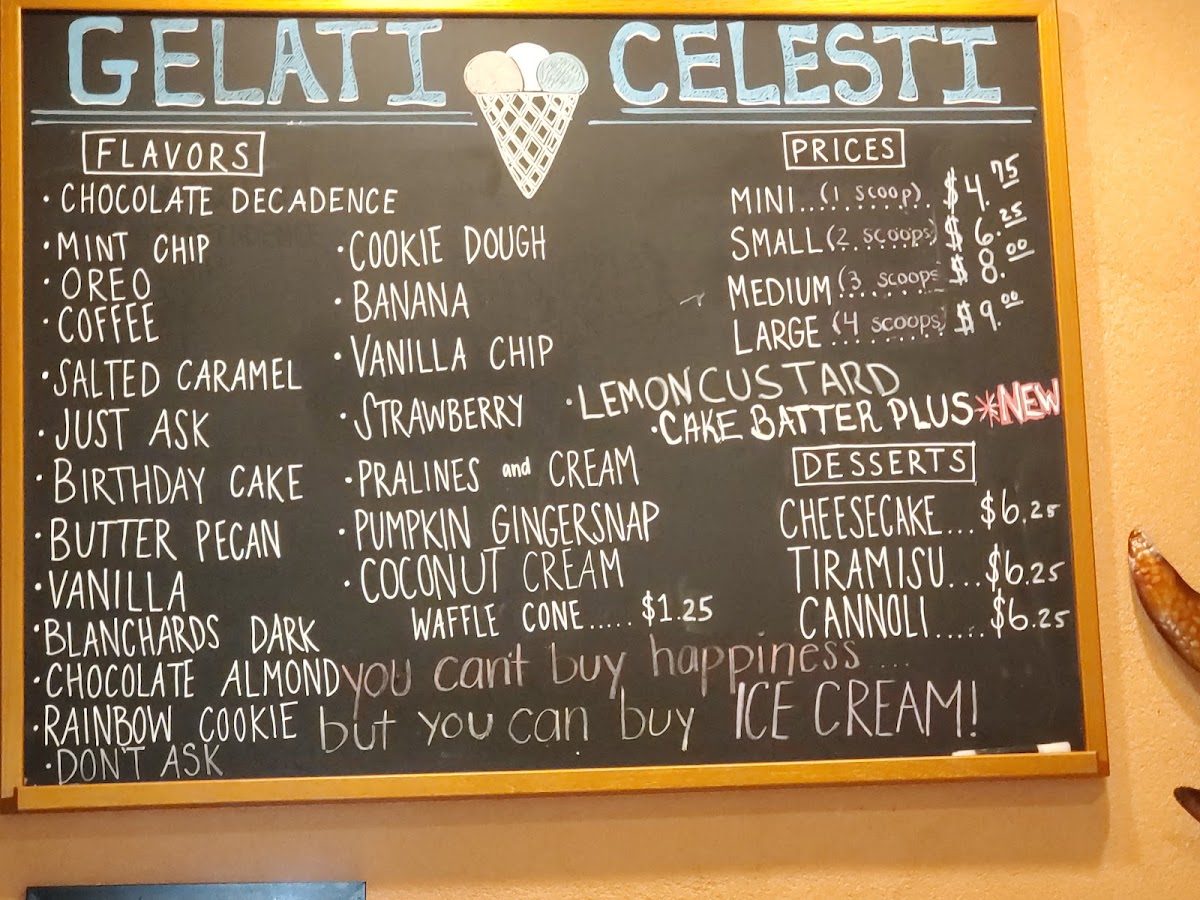 GELATI CELESTI
FLAVORS
• CHOCOLATE DECADENCE
• MINT CHIP
• OREO
• COFFEE
• SALTED CARAMEL
• JUST ASK
• BIRTHDAY CAKE
• BUTTER PECAN
• VANILLA
• BLANCHARDS DARK
• CHOCOLATE ALMOND
• RAINBOW COOKIE
• DON'T ASK
• COOKIE DOUGH
• BANANA
• VANILLA CHIP
• STRAWBERRY
• PRALINES and CREAM
• PUMPKIN GINGERSNAP
• COCONUT CREAM
WAFFLE CONE..... $1.25
• LEMON CUSTARD
• CAKE BATTER PLUS *NEW
PRICES
MINI...(1 scoop). $4.75
SMALL (2 scoops) $6.25
MEDIUM (3 scoops $8.00
LARGE (4 scoops) $9.00
DESSERTS
CHEESECAKE... $6.25
TIRAMISU... $6.25
CANNOLI..... $6.25
you can't buy happiness....
but you can buy ICE CREAM!